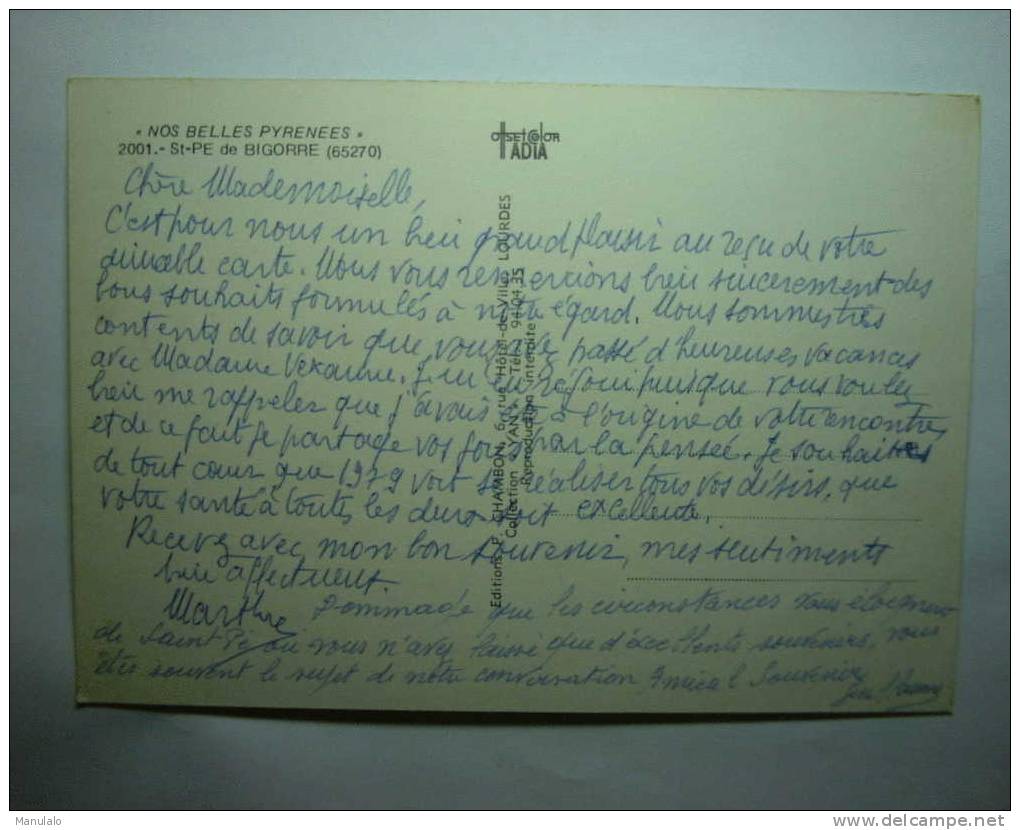 « NOS BELLES PYRENEES »
2001.- St-PE de BIGORRE (65270)
OFFSET COLOR
ADIA
Chère Mademoiselle,
C'est pour nous un bien grand plaisir au reçu de votre
aimable carte. Nous vous remercions bien sincèrement des
bons souhaits formulés à notre égard. Nous sommes très
contents de savoir que vous avez passé d'heureuses vacances
avec Madame J'en ai réjoui puisque vous voulez
bien me rappeler que j'avais été à l'origine de votre rencontre
et de ce fait je partage vos joies par la pensée. Je souhaite
de tout cœur que 1979 voit se réaliser tous vos désirs, que
votre santé à toutes les deux soit excellente.
Recevez avec mon bon souvenir, mes sentiments
bien affectueux.
Marthe
Dommage que les circonstances vous éloignent
de Saint Pé où vous n'avez laissé que d'excellents souvenirs, vous
êtes souvent le sujet de notre conversation Amical Souvenir
Editions P. CHAMBON, 6, rue Hôtel-de-Ville, LOURDES
Collection "YAN" - Tél. 94.04.35
Reproduction interdite
Manulalo
www.delcampe.net